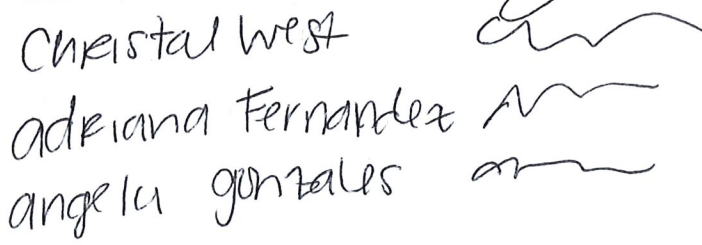 Christal West
adriana Fernandez
angela gonzales